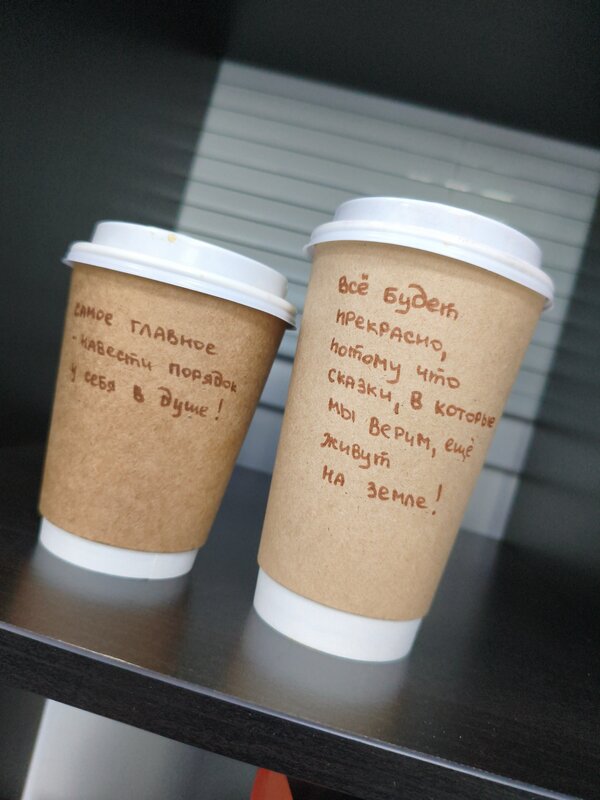 самое главное
- навести порядок
у себя в душе!
Всё будет
прекрасно,
потому что
сказки, в которые
мы верим, ещё
живут
на земле!